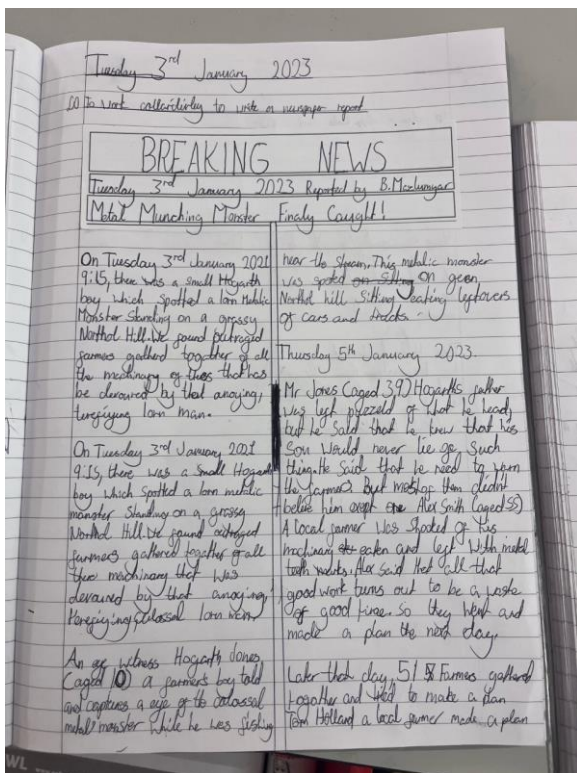 Tuesday 3rd January 2023
LO To work collardirley to write a newspaper report
BREAKING NEWS
Tuesday 3rd January 2023 Reported by B.Mazlumyar
Metal Munching Monster Finaly Caught!
On Tuesday 3rd January 2021
9:15, there was a small Hogarth
boy which spotted a Iorn Metalic
Monster Standing on a grassy
Northol Hill. We found outraged
farmers gatherd together of all
the machinary of thers that has
be devoured by that anoying,
teregiying Iorn man.
On Tuesday 3rd January 2021
9:15, there was a small Hogarth
boy which spotted a Iorn metalic
monster Standing on a grassy
Northol Hill. We found outraged
farmers gathered together of all
there machinary that was
devoured by that anoying,
teregiying, colossal Iorn man.
An eye witness Hogarth Jones
(aged 10) a farmer's boy told
and captures a eye of the colossal
metal monster while he was fishing
near the Stream. This metalic monster
was spoted on sitting on green
Northol hill sitting eating leftovers
of cars and trucks.
Thursday 5th January 2023.
Mr Jones (aged 39) Hogarths father
was left puzzeld of what he head,
but he Said that he knew that his
Son would never lie of Such
thing. He said that he need to warn
the farmers But most of them didint
belive him exept one Alex Smith (aged 55)
A local farmer was Shoked of his
machinary eaten and left with metal
teeth marks. Alex Said that all that
good work turns out to be a waste
of good time. So they went and
made a plan the next day.
Later that day, 51 Farmers gathered
together and tried to make a plan
Tom Holland a local farmer made a plan
WL